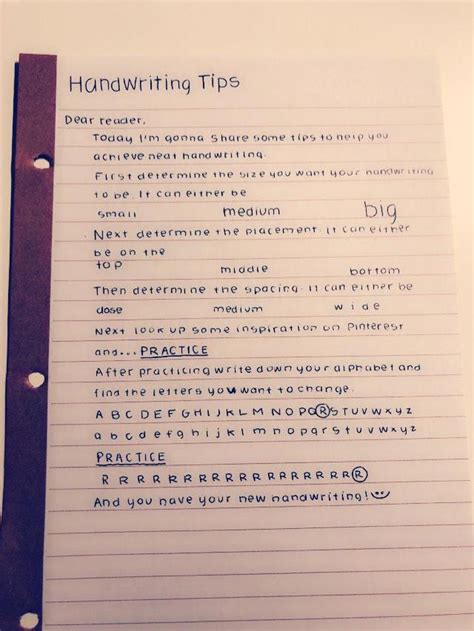 Handwriting Tips
Dear reader,
Today I'm gonna share some tips to help you
achieve neat handwriting.
First determine the size you want your handwriting
to be. It can either be
small medium big
Next determine the placement. It can either
be on the
top middle bottom
Then determine the spacing. It can either be
close medium wide
Next look up some inspiration on Pinterest
and... PRACTICE
After practicing write down your alphabet and
find the letters you want to change.
A B C D E F G H I J K L M N O P Q R S T U V W X Y Z
a b c d e f g h i j k l m n o p q r s t u v w x y z
PRACTICE
R R R R R R R R R R R R R R R R R R
And you have your new handwriting! :)